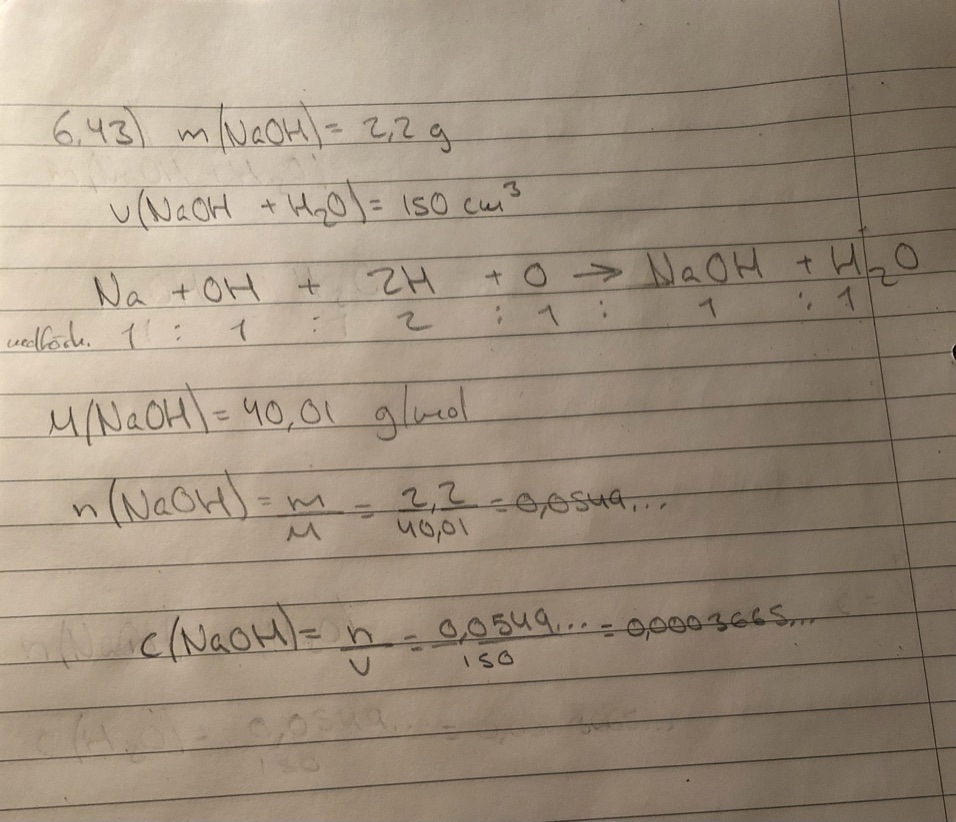 6.43) m(NaOH) = 2,2 g
V(NaOH + H₂O) = 150 cm³
Na + OH + 2H + O → NaOH + H₂O
1 : 1 : 2 : 1 : 1 : 1
M(NaOH) = 40,01 g/mol
n(NaOH) = m/M = 2,2/40,01 = 0,0549...
c(NaOH) = n/V = 0,0549.../150 = 0,0003665...